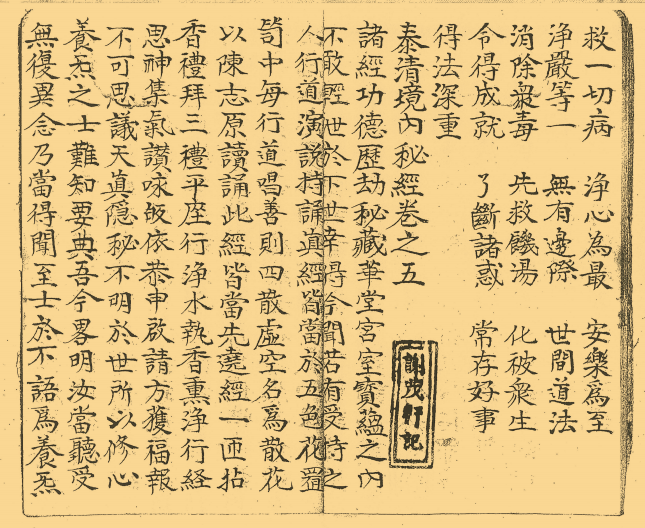 救一切病　淨心為最　安樂爲至
淨嚴等一　無有邊際　世間道法
消除衆毒　先救饑湯　化被衆生
令得成就　了斷諸惑　常存好事
得法深重
泰清境內秘經卷之五
謝茂軒記
諸經功德歷劫秘藏華堂宮室寶蘊之內
不敢輕泄於下世幸得令聞若有受持之
人行道演說持誦眞經皆當於五色花罨
笥中每行道唱善則四散虛空名爲散花
以陳志原讀誦此經皆當先遶經一匝拈
香禮拜三禮平座行淨水執香熏淨行経
思神集氣讃咏皈依恭申啟請方獲福報
不可思議天眞隱秘不明於世所以修心
養炁之士難知要典吾今畧明汝當聽受
無復異念乃當得聞至士於不語爲養炁